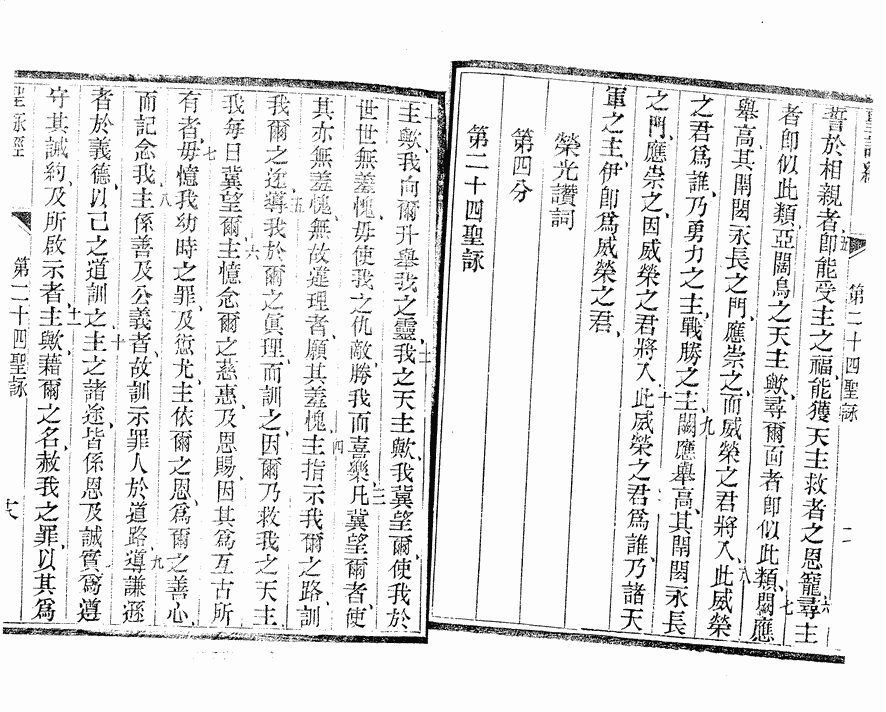 聖詠經
第二十四聖詠
二
誓於相親者、五即能受主之福、能獲天主救者之恩寵、六尋主
者即似此類、亞闊烏之天主歟、尋爾面者即似此類、七闗應
舉高、其閘閎永長之門、應崇之、而威榮之君將入、八此威榮
之君爲誰、乃勇力之主、戰勝之主、九闗應舉高、其閘閎永長
之門、應崇之、因威榮之君將入、十此威榮之君爲誰、乃諸天
軍之主、伊即爲威榮之君、
榮光讚詞
第四分
第二十四聖詠
一主歟、我向爾升舉我之靈、二我之天主歟、我冀望爾、使我於
世世無羞愧、毋使我之仇敵、勝我而喜樂、三凡冀望爾者、使
其亦無羞愧、無故違理者、願其羞愧、四主指示我爾之路、訓
我爾之途、五導我於爾之眞理、而訓之、因爾乃救我之天主、
我每日冀望爾、六主憶念爾之慈惠、及恩賜、因其爲互古所
有者、七毋憶我幼時之罪、及愆尤、主依爾之恩、爲爾之善心、
而記念我、八主係善及公義者、故訓示罪人於道路、九導謙遜
者於義德、以己之道訓之、十主之諸途、皆係恩及誠實、爲遵
守其誡約、及所啟示者、十一主歟、藉爾之名、赦我之罪、以其爲
聖詠經
第二十四聖詠